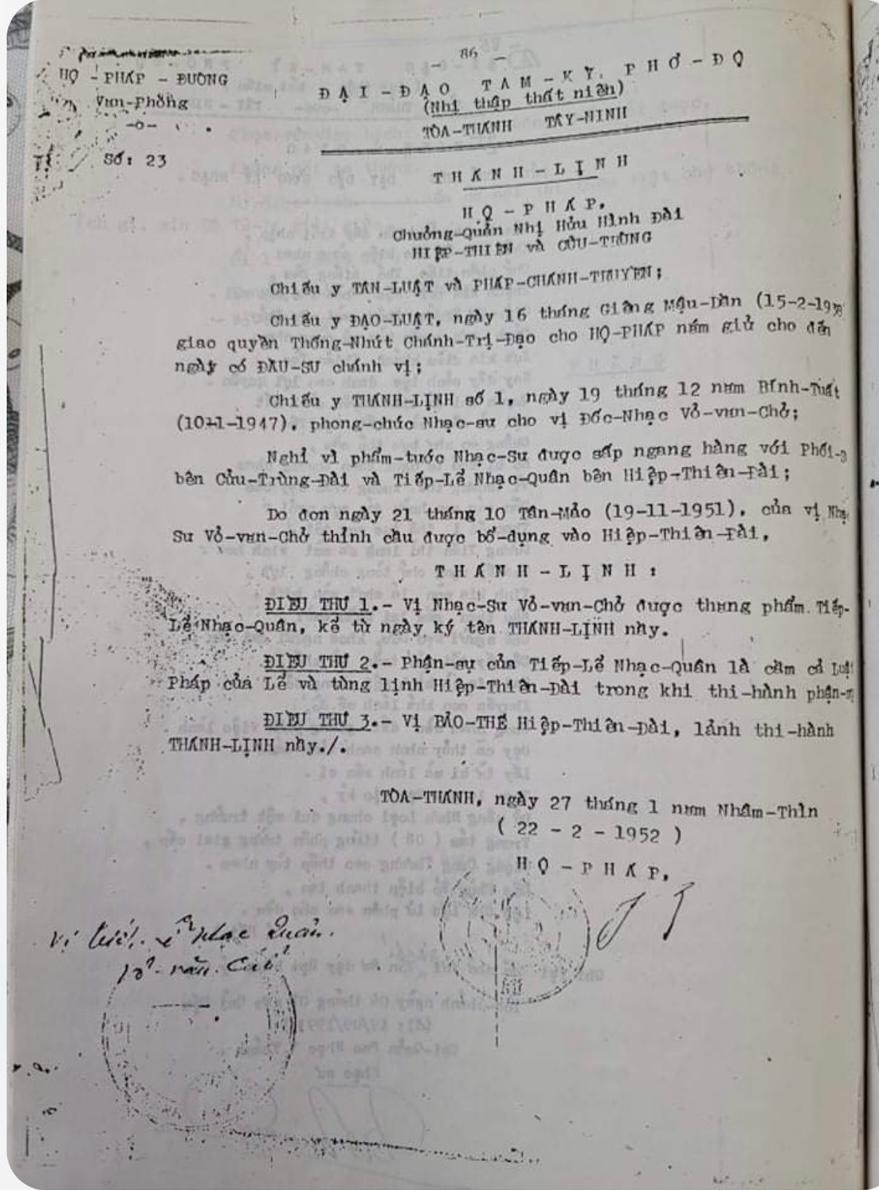 - 86 -
HỘ - PHÁP - ĐƯỜNG
Văn-Phòng
-o-
Số: 23
ĐẠI - ĐẠO TAM - KỲ, PHỔ - ĐỘ
(Nhị thập thất niên)
TÒA-THÁNH TÂY-NINH
THÁNH - LỊNH
HỘ - PHÁP,
Chưởng-Quản Nhị Hữu Hình Đài
HIỆP-THIÊN và CỬU-TRÙNG
Chiếu y TÂN-LUẬT và PHÁP-CHÁNH-TRUYỀN;
Chiếu y ĐẠO-LUẬT, ngày 16 tháng Giêng Mậu-Dần (15-2-1938
giao quyền Thống-Nhứt Chánh-Trị-Đạo cho HỘ-PHÁP nắm giữ cho đến
ngày có ĐẦU-SƯ chánh vị;
Chiếu y THÁNH-LỊNH số 1, ngày 19 tháng 12 năm Bính-Tuất
(10-1-1947), phong-chức Nhạc-sư cho vị Đốc-Nhạc Võ-văn-Chở;
Nghỉ vì phẩm-tước Nhạc-Sư được sắp ngang hàng với Phối-
bên Cửu-Trùng-Đài và Tiếp-Lể Nhạc-Quân bên Hiệp-Thiên-Đài;
Do đơn ngày 21 tháng 10 Tân-Mảo (19-11-1951), của vị Nhạc
Sư Võ-văn-Chở thỉnh cầu được bổ-dụng vào Hiệp-Thiên-Đài,
THÁNH - LỊNH :
ĐIỀU THỨ 1.- Vị Nhạc-Sư Võ-văn-Chở được thăng phẩm Tiếp-
Lể Nhạc-Quân, kể từ ngày ký tên THÁNH-LỊNH nầy.
ĐIỀU THỨ 2.- Phận-sự của Tiếp-Lể Nhạc-Quân là cầm cả Luật
Pháp của Lể và tùng lịnh Hiệp-Thiên-Đài trong khi thi-hành phận-sự
ĐIỀU THỨ 3.- Vị BẢO-THẾ Hiệp-Thiên-Đài, lảnh thi-hành
THÁNH-LỊNH nầy./.
TÒA-THÁNH, ngày 27 tháng 1 năm Nhâm-Thìn
( 22 - 2 - 1952 )
HỘ - PHÁP,
Vị Tiếp lể Nhạc Quân.
Võ văn Chở